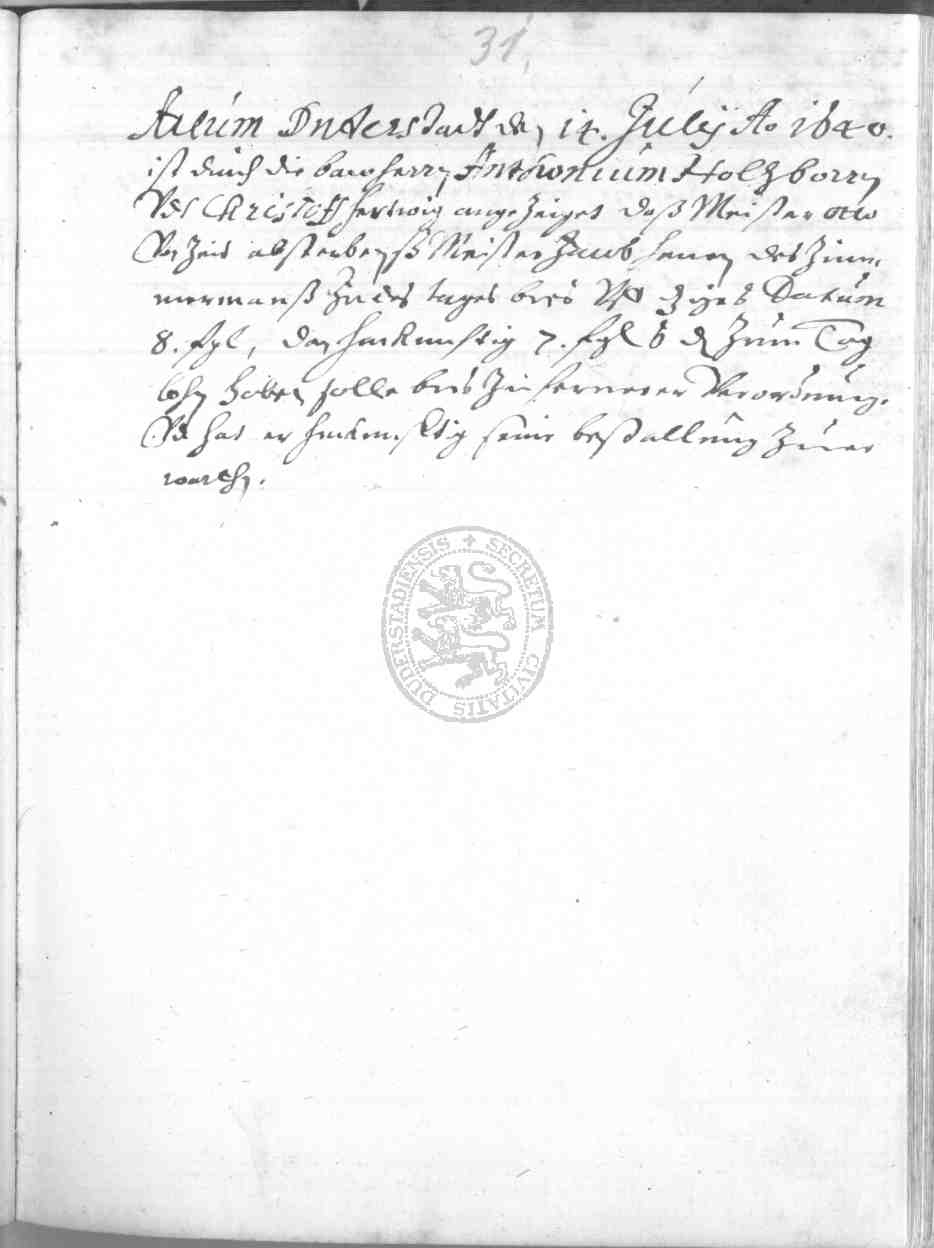 31.
Actum Duderstadt den 14. Julij Ao 1640.
ist durch die bawherrn Anthonium Holzborn
Vnd Christoff Hertwig angezeiget daß Meister otto
Von Zeit absterbenß Meister Jacob henen des Zim,
mermanß Jedes tages bis Vff Datum
8. fgl, den hinkunftig 7. fgl 6 d Zum Tag
lohn haben solle bis Zu fernerer Verordnung.
Vnd hat er hinkunfftig seine bestallung Zuer
warthen.
DUDERSTADIENSIS + SECRETUM CIVITATIS